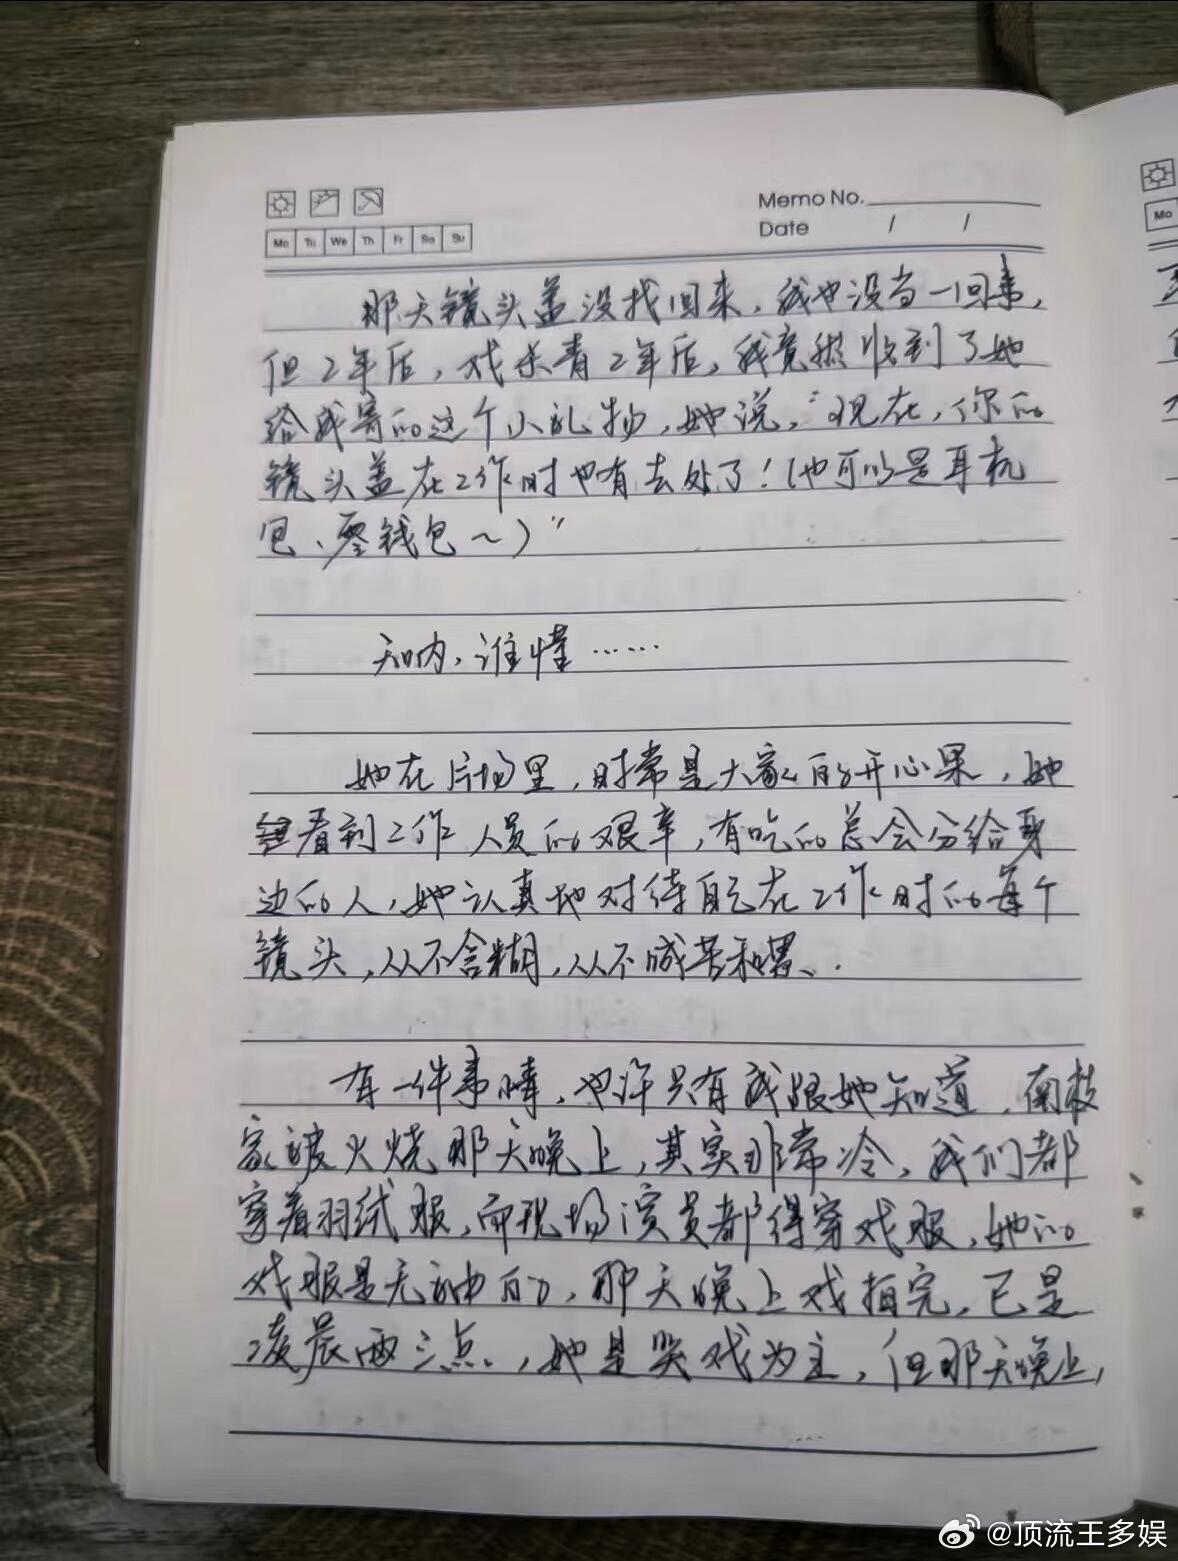 Memo No.
Mo Tu We Th Fr Sa Su
Date / /
那天镜头盖没找回来,我也没当一回事,
但2年后,戏杀青2年后,我竟然收到了她
给我寄的这个小礼物,她说,“现在,你的
镜头盖在工作时也有去处了!(也可以是耳机
包、零钱包~)”
知内,谁懂……
她在片场里,时常是大家的开心果,她
看到工作人员的艰辛,有吃的总会分给身
边的人,她认真地对待自己在工作时的每个
镜头,从不含糊,从不喊苦和累、.
有一件事情,也许只有我跟她知道,南枝
家被火烧那天晚上,其实非常冷,我们都
穿着羽绒服,而现场演员都得穿戏服,她的
戏服是无袖的,那天晚上戏拍完,已是
凌晨两三点,她是哭戏为主,但那天晚上,
Mo
@顶流王多娱